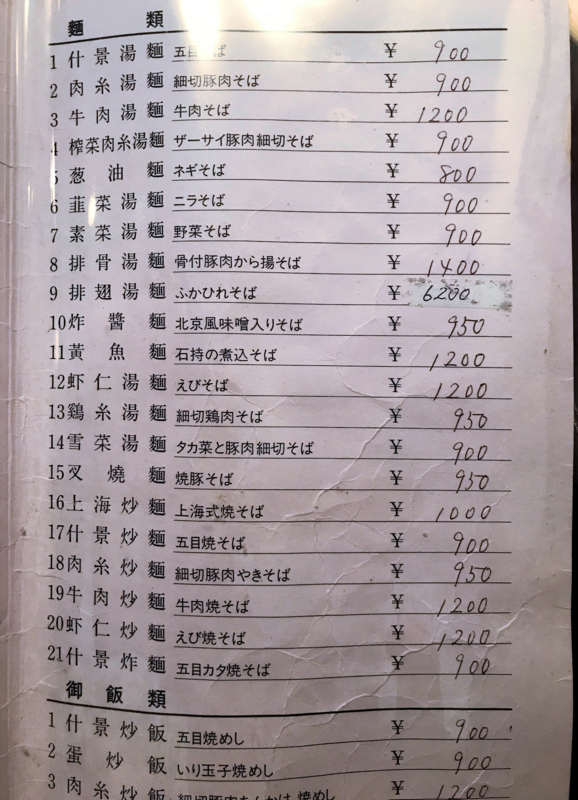 麵類
1 什景湯麵 五目そば ¥ 900
2 肉糸湯麵 細切豚肉そば ¥ 900
3 牛肉湯麵 牛肉そば ¥ 1200
4 榨菜肉糸湯麵 ザーサイ豚肉細切そば ¥ 900
5 葱油麵 ネギそば ¥ 800
6 韮菜湯麵 ニラそば ¥ 900
7 素菜湯麵 野菜そば ¥ 900
8 排骨湯麵 骨付豚肉から揚そば ¥ 1400
9 排翅湯麵 ふかひれそば ¥ 6200
10 炸醬麵 北京風味噌入りそば ¥ 950
11 黃魚麵 石持の煮込そば ¥ 1200
12 虾仁湯麵 えびそば ¥ 1200
13 鷄糸湯麵 細切鶏肉そば ¥ 950
14 雪菜湯麵 タカ菜と豚肉細切そば ¥ 900
15 叉燒麵 焼豚そば ¥ 950
16 上海炒麵 上海式焼そば ¥ 1000
17 什景炒麵 五目焼そば ¥ 900
18 肉糸炒麵 細切豚肉やきそば ¥ 950
19 牛肉炒麵 牛肉焼そば ¥ 1200
20 虾仁炒麵 えび焼そば ¥ 1200
21 什景炸麵 五目カタ焼そば ¥ 900
御飯類
1 什景炒飯 五目焼めし ¥ 900
2 蛋炒飯 いり玉子焼めし ¥ 900
3 肉糸炒飯 細切豚肉あんかけ焼めし ¥ 1200